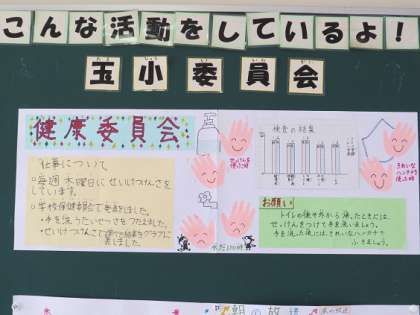 こんな活動をしているよ!
玉小委員会
健康委員会
仕事について
○毎週木曜日にせいけつけんさを
しています。
○学校保健委員会で発表をしました。
・手を洗うたいせつさをつたえました。
・せいけつけんさで調べた結果をグラフに
表しました。
検査の結果
せっけんを
使った時
きれいな
ハンカチを
使った時
水だけの時
お願い
トイレの後や外から帰ったときには、
せっけんをつけて手を洗いましょう。
手を洗った後には、きれいなハンカチで
ふきましょう。